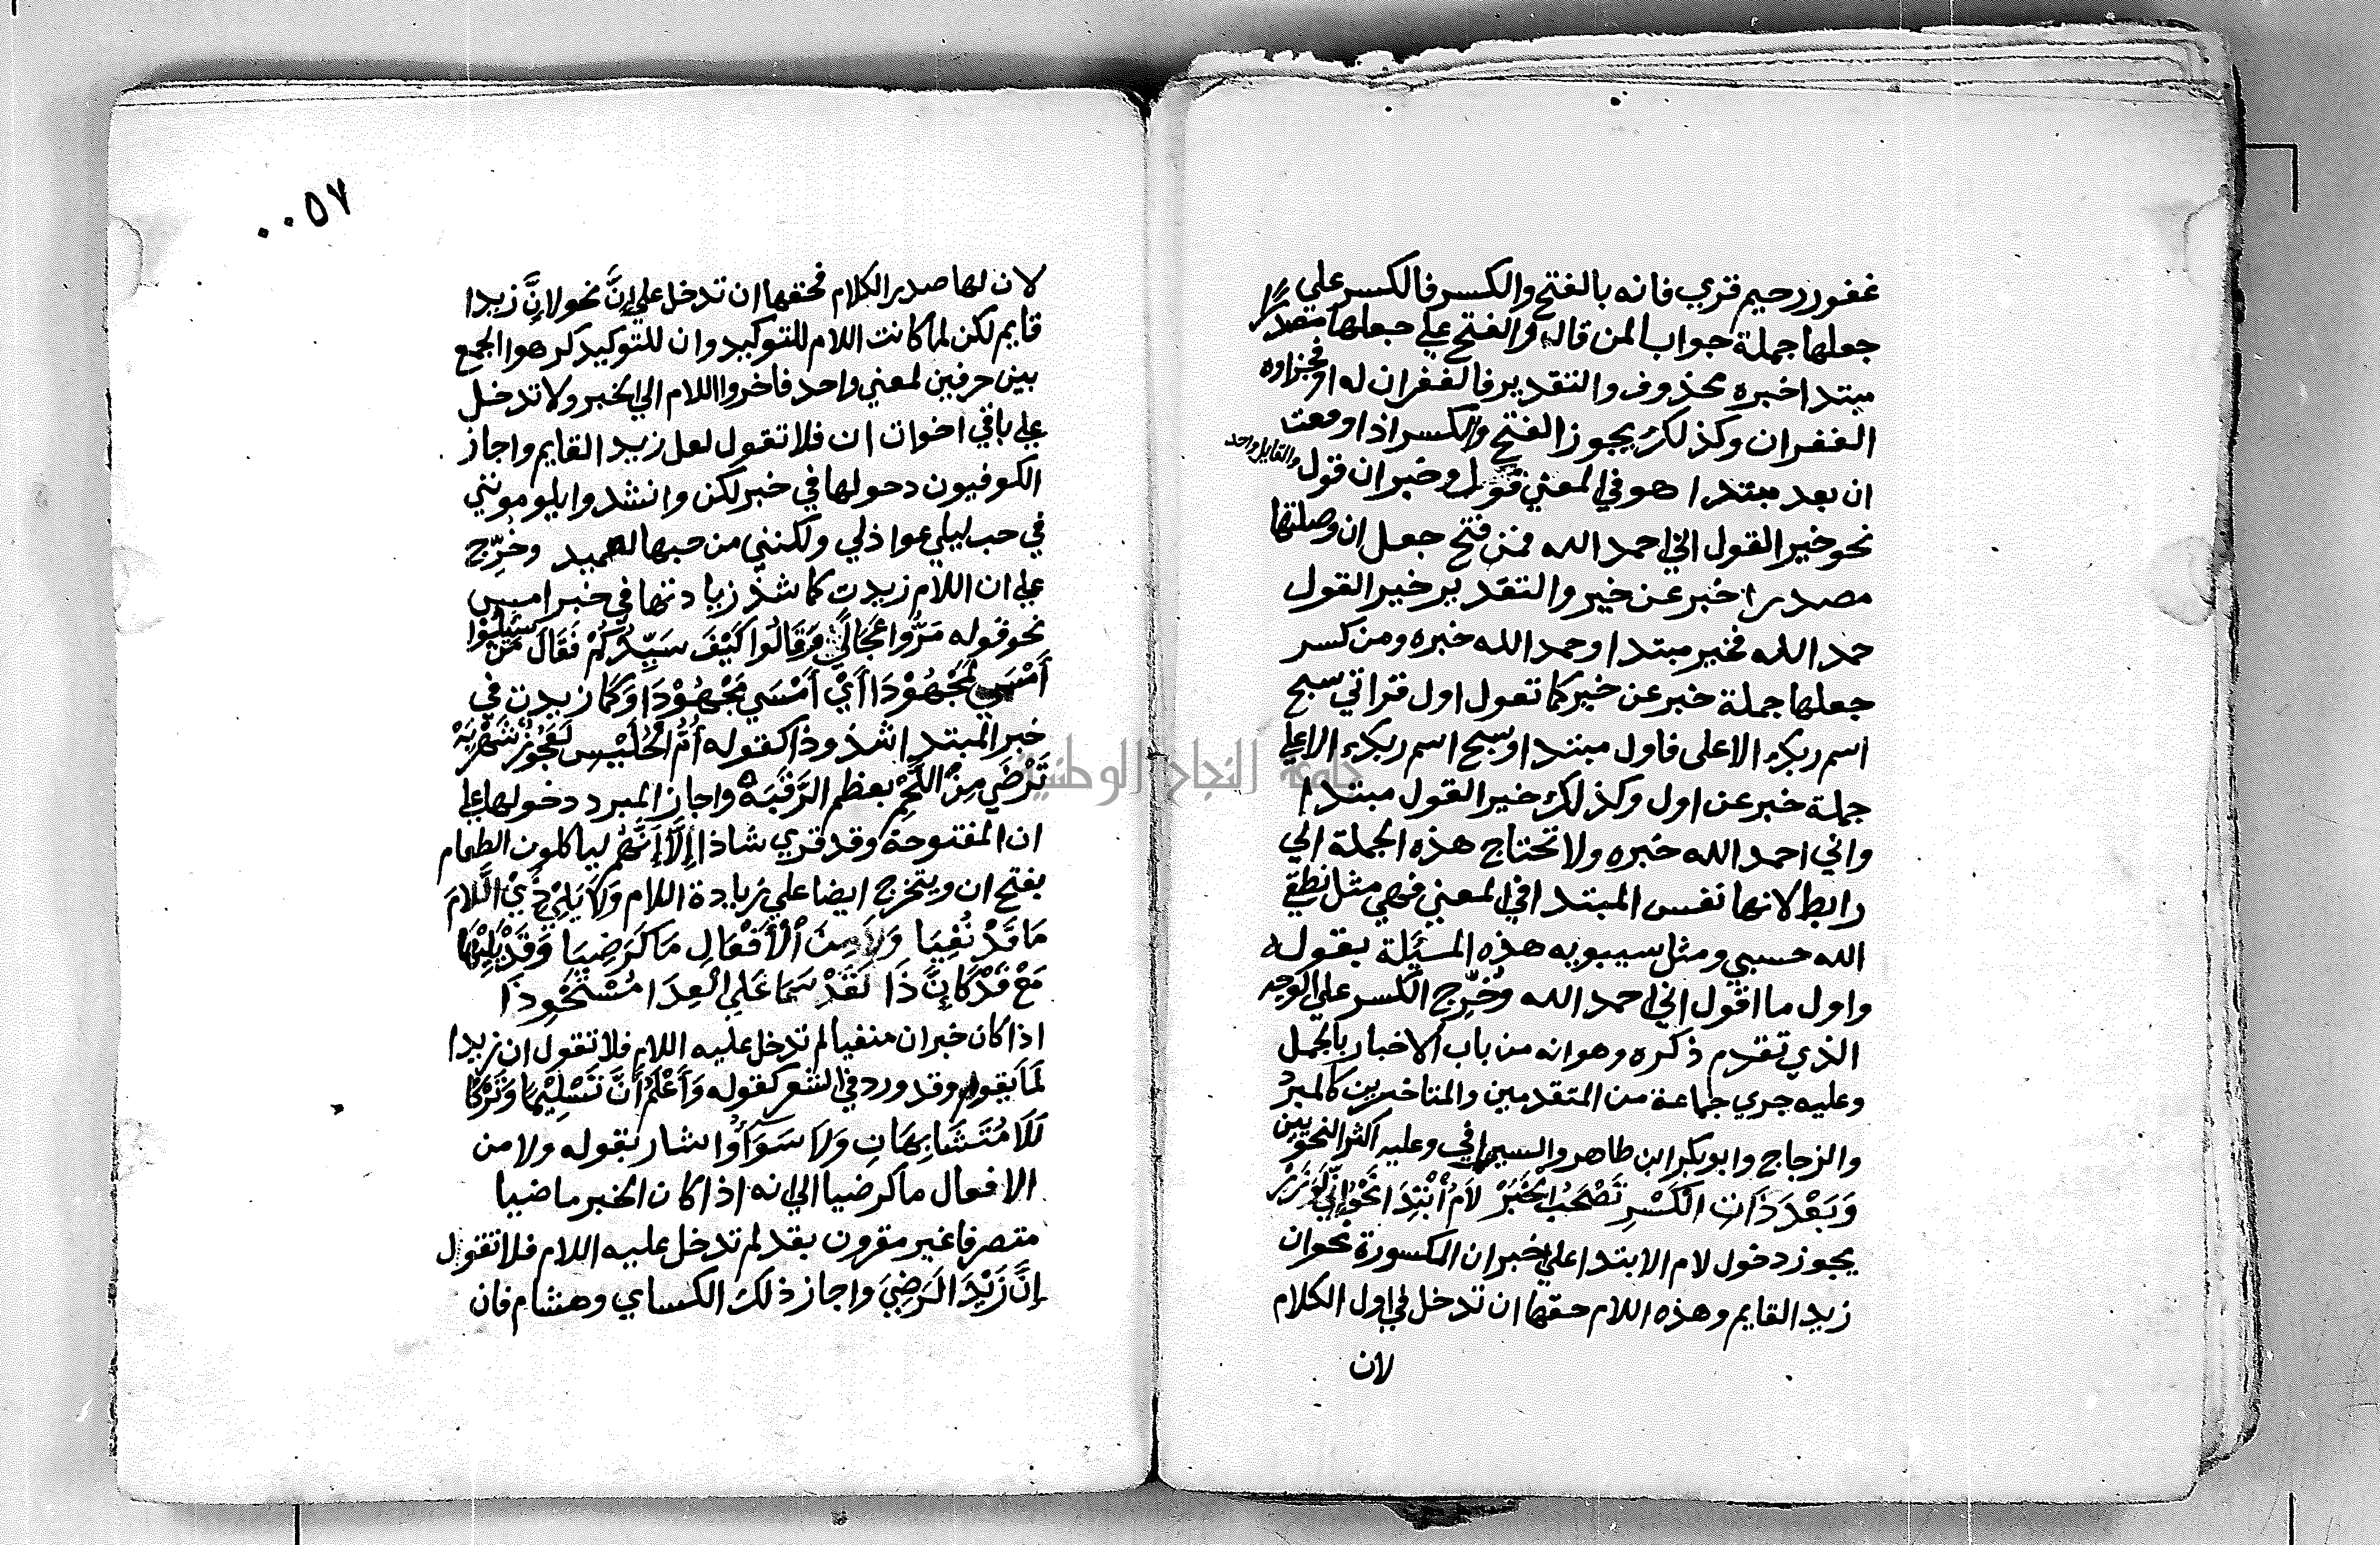 غفور رحيم قري فانه بالفتح والكسر فالكسر علي
جعلها جملة جوابا لمن قاله والفتح علي جعلها مصدرا
مبتدا خبره محذوف والتقدير فالغفران له او فجزاوه
الغفران وكذلك يجوز الفتح والكسر اذا وقعت
ان بعد مبتدا هو في المعني قول وخبر ان قول والقايل واحد
نحو خير القول اني احمد الله فمن فتح جعل ان وصلتها
مصدرا خبر عن خير والتقدير خير القول
حمد الله فخير مبتدا وحمد الله خبره ومن كسر
جعلها جملة خبر عن خير كما تقول اول قراتي سبح
اسم ربك الاعلى فاول مبتدا وسبح اسم ربك الاعلي
جملة خبر عن اول وكذلك خير القول مبتدا
واني احمد الله خبره ولا تحتاج هذه الجملة الي
رابط لانها نفس المبتدا في المعني فهي مثل نطقي
الله حسبي ومثل سيبويه هذه المسئلة بقوله
واول ما اقول اني احمد الله وخُرِّج الكسر علي الوجه
الذي تقدم ذكره وهو انه من باب الاخبار بالجمل
وعليه جري جماعة من المتقدمين والمتاخرين كالمبرد
والزجاج وابو بكر ابن طاهر والسيرافي وعليه اكثر النحويين
وَبَعْدَ ذَاتِ الْكَسْرِ تَصْحَبُ الْخَبَرْ لَامُ ابْتِدَا نَحْوُ إِنِّي لَوَزَرْ
يجوز دخول لام الابتدا علي خبر ان المكسورة نحو ان
زيد القايم وهذه اللام حقها ان تدخل في اول الكلام
لان
٠٠٥٧
لان لها صدر الكلام فحقها ان تدخل علي إنَّ نحو لانَّ زيدا
قايم لكن لما كانت اللام للتوكيد وان للتوكيد كرهوا الجمع
بين حرفين لمعني واحد فاخروا اللام الي الخبر ولا تدخل
علي باقي اخوات ان فلا تقول لعل زيد القايم واجاز
الكوفيون دحولها في خبر لكن وانشدوا يلومونني
في حب ليلي عواذلي ولكنني من حبها لعميد وخُرِّج
علي ان اللام زيدت كما شذ زيادتها في خبر امسي
نحو قوله مَرُّوا عُجَالَي وَقَالُوا كَيْفَ سَيِّدُكُمْ فَقَالَ مَنْ سُئِلُوا
أَمْسَي لَمَجْهُوْدَا أَيْ أَمْسَي مَجْهُوْدَا وَكَمَا زيدت في
خبر المبتدا شذوذا كقوله أُمُّ الْحُلَيْسِ لَعَجُوْزٌ شَهْرَبَهْ
تَرْضَي مِنَ اللَّحْمِ بعظم الرَّقَبَهْ واجاز المبرد دخولها علي
ان المفتوحة وقد قري شاذا إِلَّا أَنَّهُمْ لياكلون الطعام
بفتح ان ويتخرج ايضا علي زيادة اللام وَلَا يَلِيْ ذِيْ اللَّامَ
مَا قَدْ نُفِيَا وَلَا مِنَ الْأَفْعَالِ مَا كَرَضِيَا وَقَدْ يَلِيْهَا
مَعْ قَدْ كَإِنَّ ذَا لَقَدْ سَمَا عَلَي الْعِدَا مُسْتَحْوِذَا
اذا كان خبر ان منفيا لم تدخل عليه اللام فلا تقول ان زيدا
لَمَا يقوم وقد ورد في الشعر كقوله وَأَعْلَمُ أَنَّ تَسْلِيْمًا وَتَرْكًا
لَلَا مُتَشَابِهَانِ وَلَا سَوَاءُ واشار بقوله ولا من
الافعال ما كرضيا الي انه اذا كان الخبر ماضيا
متصرفا غير مقرون بقد لم تدخل عليه اللام فلا تقول
إِنَّ زَيْدًا لَرَضِيَ واجاز ذلك الكساي وهشام فان
جامعة النجاح الوطنية